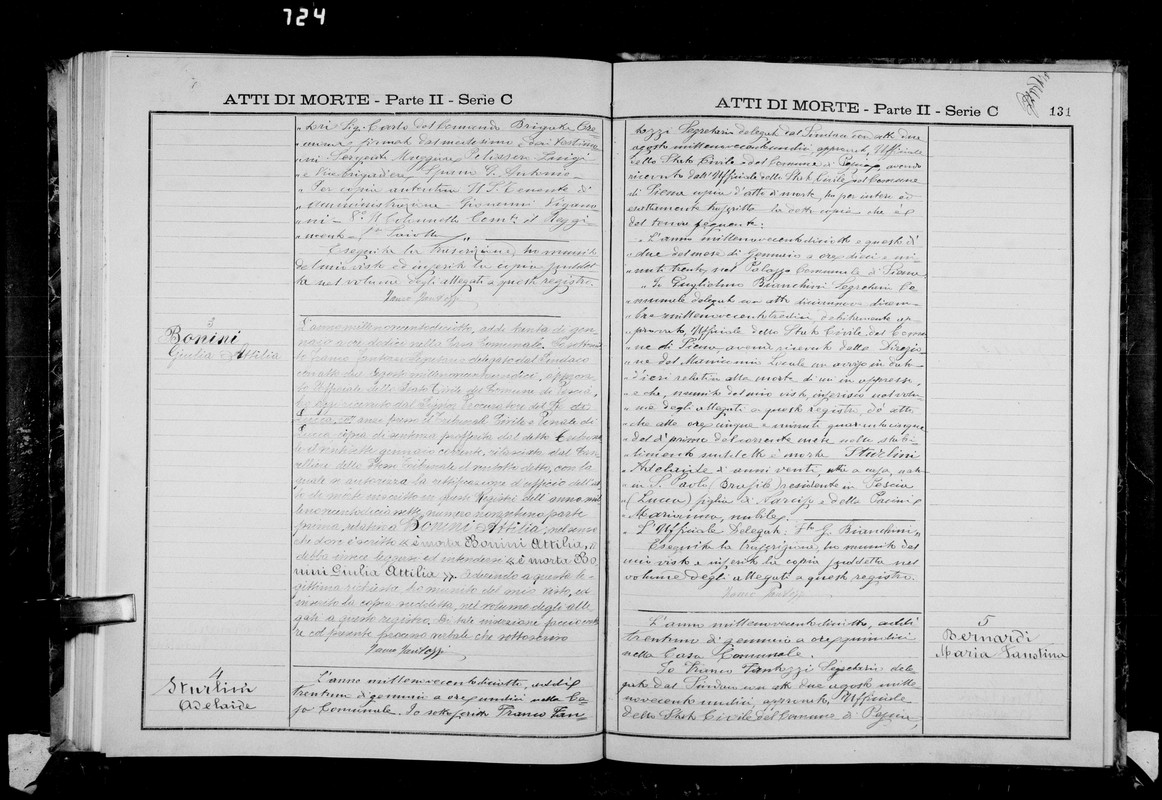 724
ATTI DI MORTE - Parte II - Serie C
tori Sig. Carlo del Comando Brigata Cre-
mona firmato dal medesimo e dai testimo-
ni Sergente Maggiore Pelissero Luigi
e Vice brigadiere Spano Antonio
Per copia autentica Il S. Tenente di
amministrazione Giovanni Vigano-
ni - Il Colonnello Com.te il Reggi-
mento
Eseguita la trascrizione, ho munito
del mio visto ed inserito la copia suddet-
ta nel volume degli allegati a questo registro.
Franco Fantozzi
3
Bonini
Giulia Attilia
L'anno millenovecentodiciotto, addì trenta di gen-
naio a ore dodici nella Casa Comunale. Io sottoscrit-
to Franco Fantozzi Segretario delegato dal Sindaco
con atto due Agosto millenovecentoundici, approva-
to Ufficiale dello Stato Civile del Comune di Pescia,
ho oggi ricevuto dal Signor Procuratore del Re di
Lucca, presso il Tribunale Civile e Penale di
Lucca copia di sentenza proferita dal detto Tribuna-
le il gennaio corrente, rilasciata dal Can-
celliere dello stesso Tribunale il detto, con la
quale si autorizza la rettificazione d'ufficio dell'at-
to di morte inscritto in questi Registri dell'anno mil-
lenovecentodiciassette, numero parte
prima, relativo a Bonini Attilia, nel senso
che dove è scritto "è morta Bonini Attilia" si
debba invece leggere ed intendere "è morta Bo-
nini Giulia Attilia". Aderendo a questa le-
gittima richiesta, ho munito del mio visto, ed
inserito la copia suddetta, nel volume degli alle-
gati a questo registro. Di tale inserzione faccio consta-
re col presente processo verbale che sottoscrivo
Franco Fantozzi
4
Sturlini
Adelaide
L'anno millenovecentodiciotto, addì
trentuno di gennaio a ore undici nella Ca-
sa Comunale. Io sottoscritto Franco Fan-
ATTI DI MORTE - Parte II - Serie C
131
tozzi Segretario delegato dal Sindaco con atto due
agosto millenovecentoundici approvato, Ufficiale
dello Stato Civile del Comune di Pescia, avendo
ricevuto dall'Ufficiale dello Stato Civile del Comune
di Siena copia d'atto di morte, ho per intero ed
esattamente trascritto la detta copia che è
del tenore seguente:
L'anno millenovecentodiciotto e questo dì
due del mese di Gennaio a ore dieci e mi-
nuti trenta, nel Palazzo Comunale di Siena,
Io Guglielmo Bianchini Segretario Co-
munale delegato con atto diciannove dicem-
bre millenovecentotredici, debitamente ap-
provato, Ufficiale dello Stato Civile del Comu-
ne di Siena, avendo ricevuto dalla Direzio-
ne del Manicomio locale un avviso in data
d'ieri relativo alla morte di cui in appresso,
e che, munito del mio visto, inserisco nel volu-
me degli allegati a questo registro, do atto
che alle ore cinque e minuti quarantacinque
del dì primo del corrente mese nello stabi-
limento suddetto è morta Sturlini
Adelaide d'anni venti, atte a casa, nata
in S. Paolo (Brasile) residente in Pescia
(Lucca) figlia di Narciso e della Pacini
Marianna, nubile.
L'Ufficiale Delegato: F.to G. Bianchini
Eseguita la trascrizione, ho munito del
mio visto e inserito la copia suddetta nel
volume degli allegati a questo registro.
Franco Fantozzi
5
Bernardi
Maria Faustina
L'anno millenovecentodiciotto, addì
trentuno di gennaio a ore quindici
nella Casa Comunale.
Io Franco Fantozzi Segretario dele-
gato dal Sindaco con atto due agosto mille
novecentoundici, approvato, Ufficiale
dello Stato Civile del Comune di Pescia,